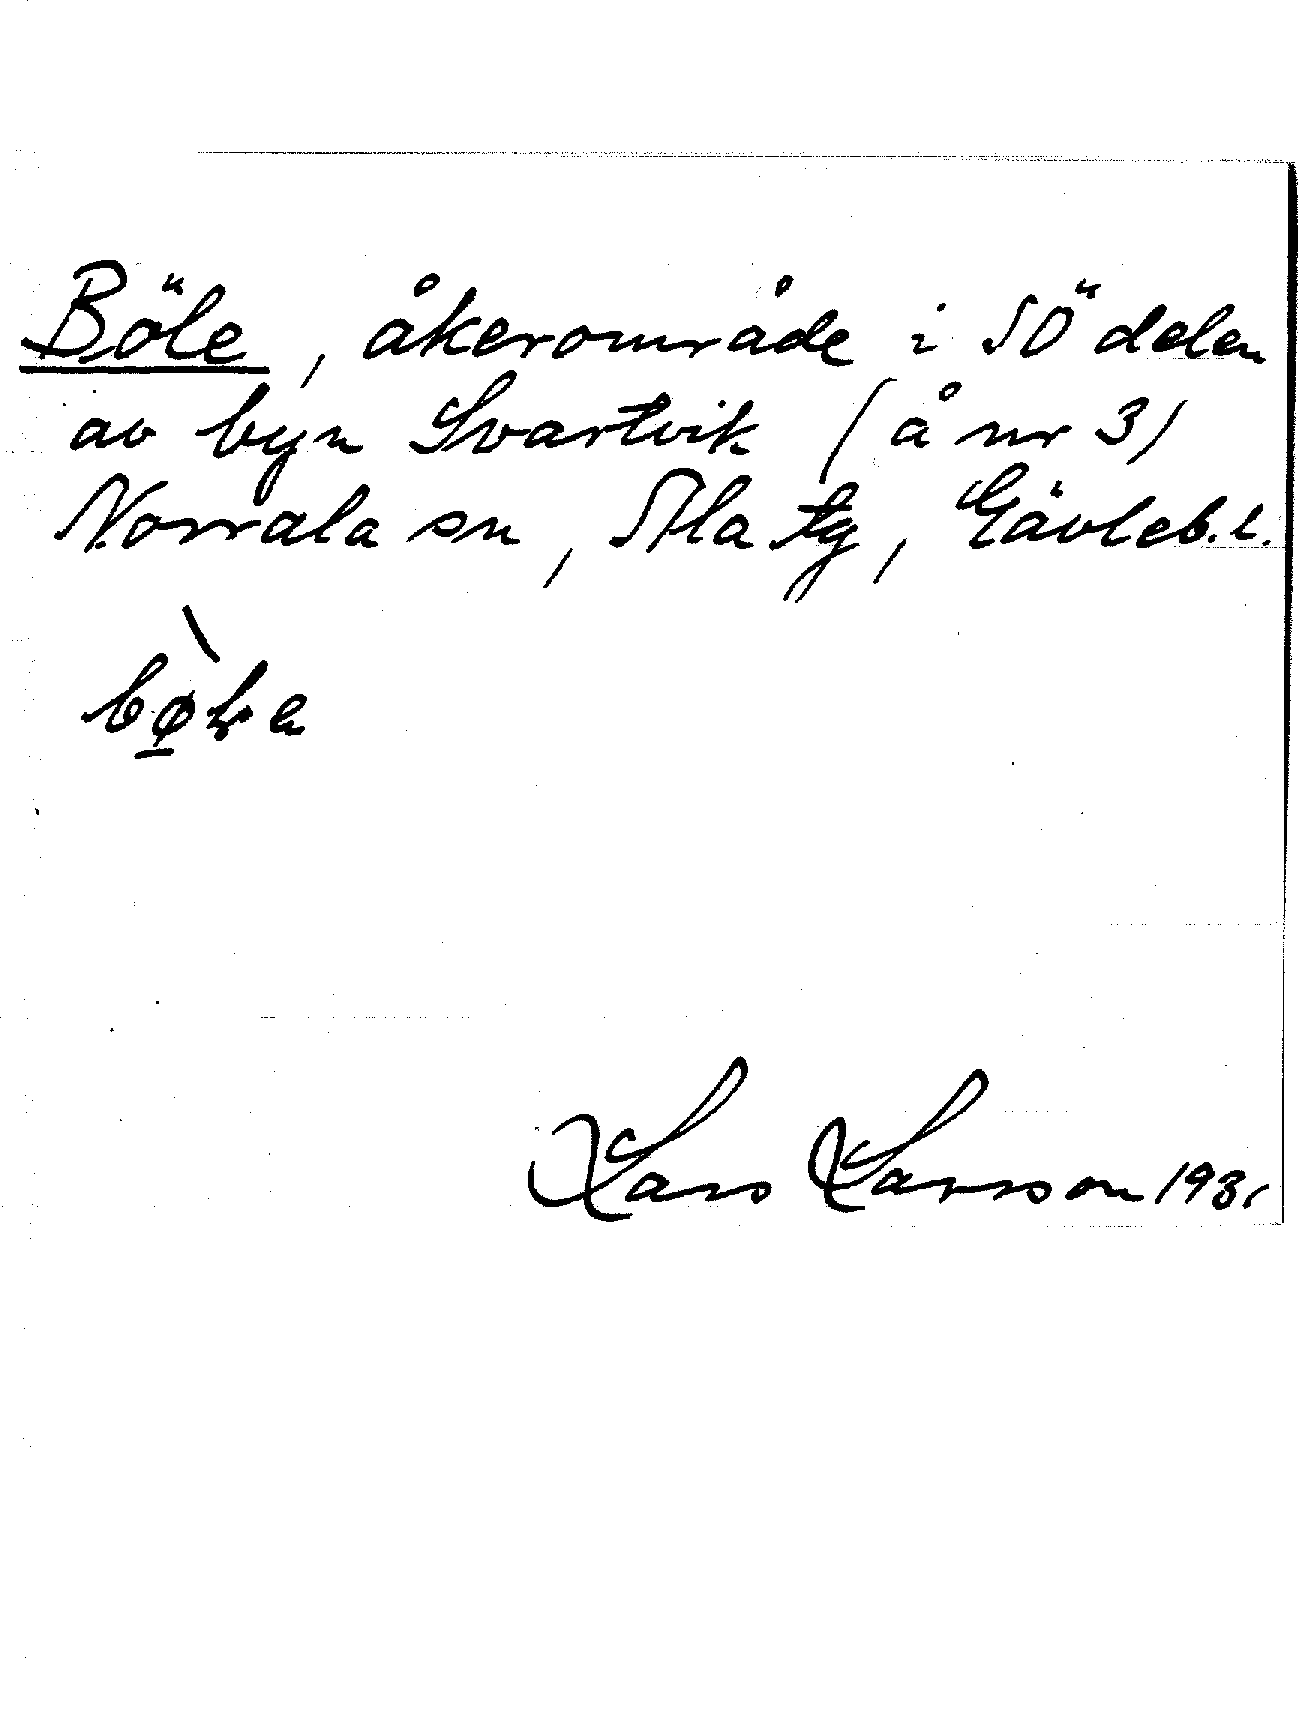 Böle, åkerområde i SÖ delen
av byn Svartvik (å nr 3)
Norrala sn, Ala tg, Gävleb.l.
Lars Larsson 1931